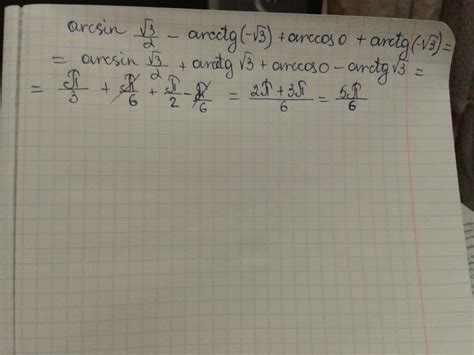 arcsin √3/2 - arcctg(-√3) + arccos0 + arctg(-√3) =
= arcsin √3/2 + arcctg √3 + arccos0 - arctg √3 =
= π/3 + π/6 + π/2 - π/6 = (2π + 3π)/6 = 5π/6